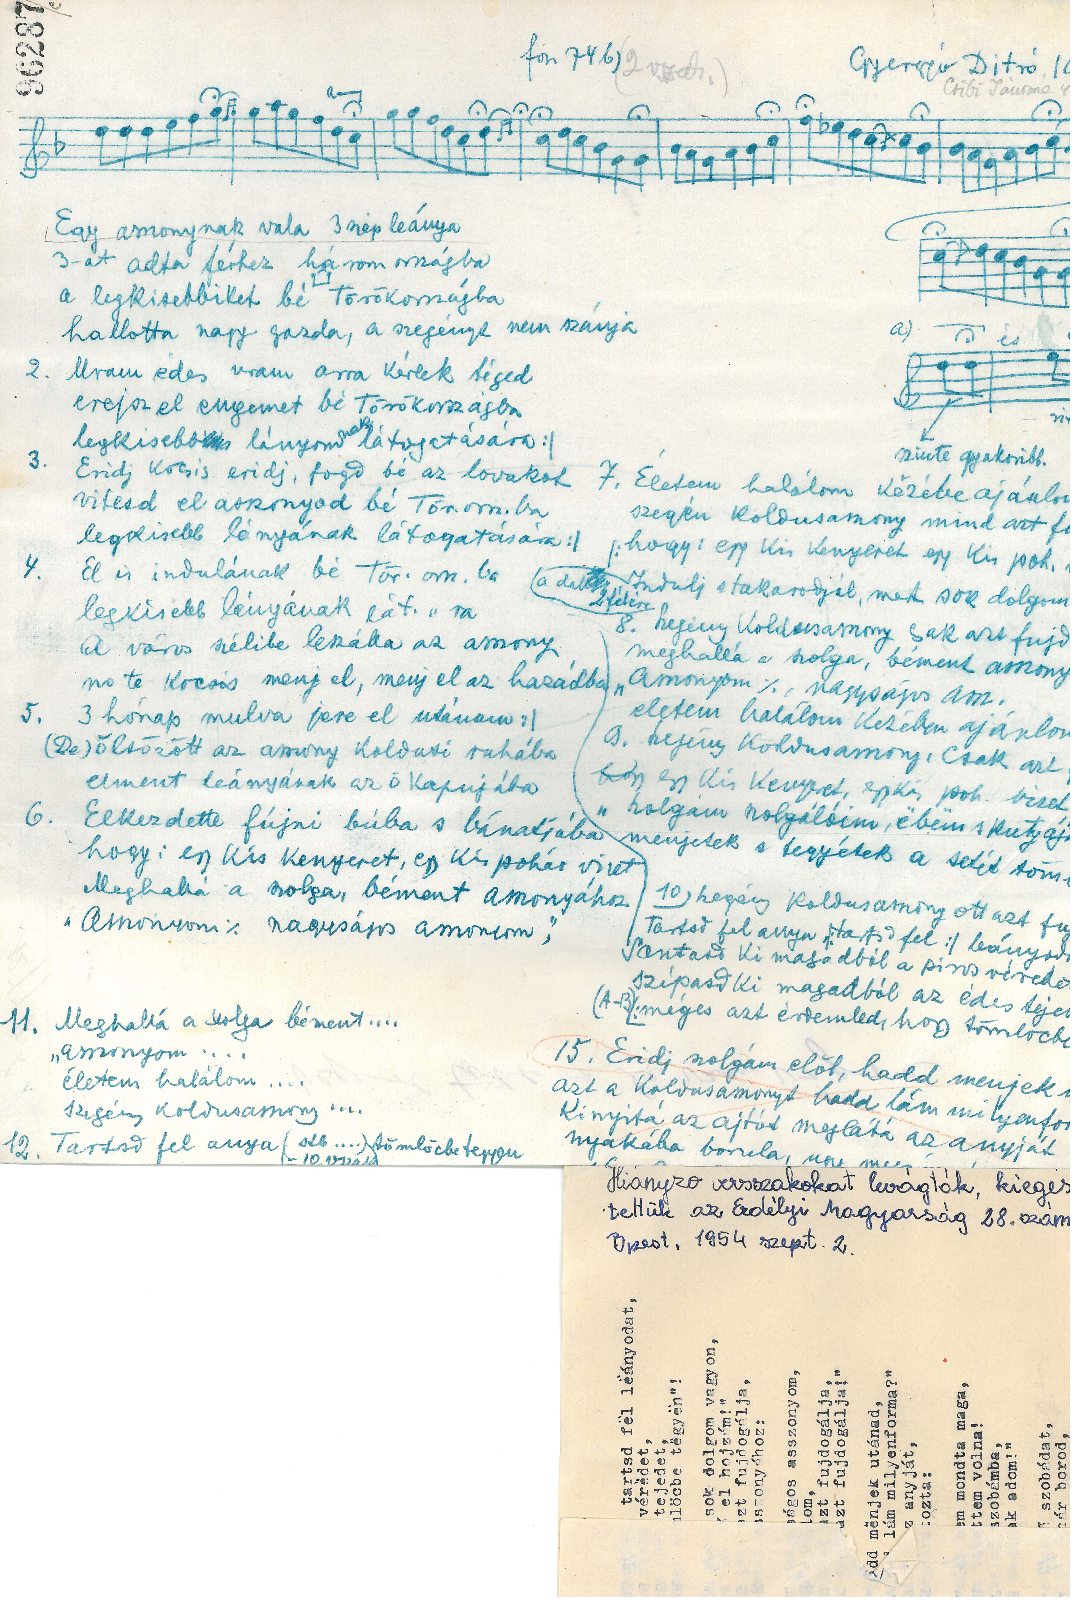 96287
fon 74 b) (2 vszak.)
Gyergyó Ditró
Csibi Jánosné
Egy asszonynak vala 3 szép leánya
3-át adta férhez három országba
a legkisebbiket bé Törökországba
hallotta nagy gazda, a szegényt nem szánja
2. Uram édes uram arra kérlek téged
erejsz el engemet bé Törökországba
legkisebb lányomnak látogatására :|
3. Eridj kocsis eridj, fogd bé az lovakot
vitesd el asszonyod bé Tör.orsz.ba
legkisebb lányának látogatására :|
4. El is indulának bé Tör. orsz. ba
legkisebb lányának lát. " ra
A város szélibe leszálla az asszony
no te kocsis menj el, menj el az hazádba
5. 3 hónap mulva jere el utánam :|
(De) öltözött az asszony koldusi ruhába
elment leányának az ő kapujába
6. Elkezdette fújni búba s bánatjába
hogy : egy kis kenyeret, egy kis pohár vizet
Meghallá a szolga, bément asszonyához
"Asszonyom ٪ nagyságos asszonyom,
11. Meghallá a szolga bément ....
"asszonyom ....
életem halálom ....
szegény koldusasszony ....
12. Tartsd fel anya (stb ....) tömlöcbe tegyen
a)
és
szinte gyakoribb.
7. Életem halálom kézébe ajánlom
szegén koldusasszony mind azt
|: hogy : egy kis kenyeret egy kis poh.
(a dallam 2. felére
Indulj s takarodjál, mert sok dolgom
8. szegény koldusasszony csak azt fujd
meghallá a szolga, bément asszony
"Asszonyom ٪, nagyságos assz.
életem halálom kezében ajánlom
9. szegény koldusasszony, csak azt
egy kis kenyeret, egy kis poh. vizet
" szolgám szolgálóim, ebem s kutyá
menjetek s tegyétek a setét töm
10) szegény koldusasszony ott azt fu
Tartsd fel anya, tartsd fel :| leányod
Szontasd ki magadból a piros véred
szípasd ki magadból az édes tejem
(A-B) |: méges azt érdemled, hogy tömlöcbe
15. Eridj szolgám elöl, hadd menjek
azt a koldusasszonyt hadd lám milyenfor
Kinyitá az ajtót meglátá az anyját
nyakába borula,
Hiányzó versszakokat levágták, kiegés
tettük az Erdélyi Magyarság 28. szám
Bpest. 1954 szept. 2.
tartsd fël lëányodat,
vérëdet,
tejedet,
ülöcbe tëgyën"!
sok dolgom vagyon,
el hozzám!"
zt fujdogálja,
sszonyához:
ságos asszonyom,
lom,
azt fujdogálja,
azt fujdogálja!"
dd mënjek utánad,
lám milyenforma?"
z anyját,
ozta:
em mondta maga,
ttem volna!
szobámba,
ak adom!"
szobádat,
ár borod,